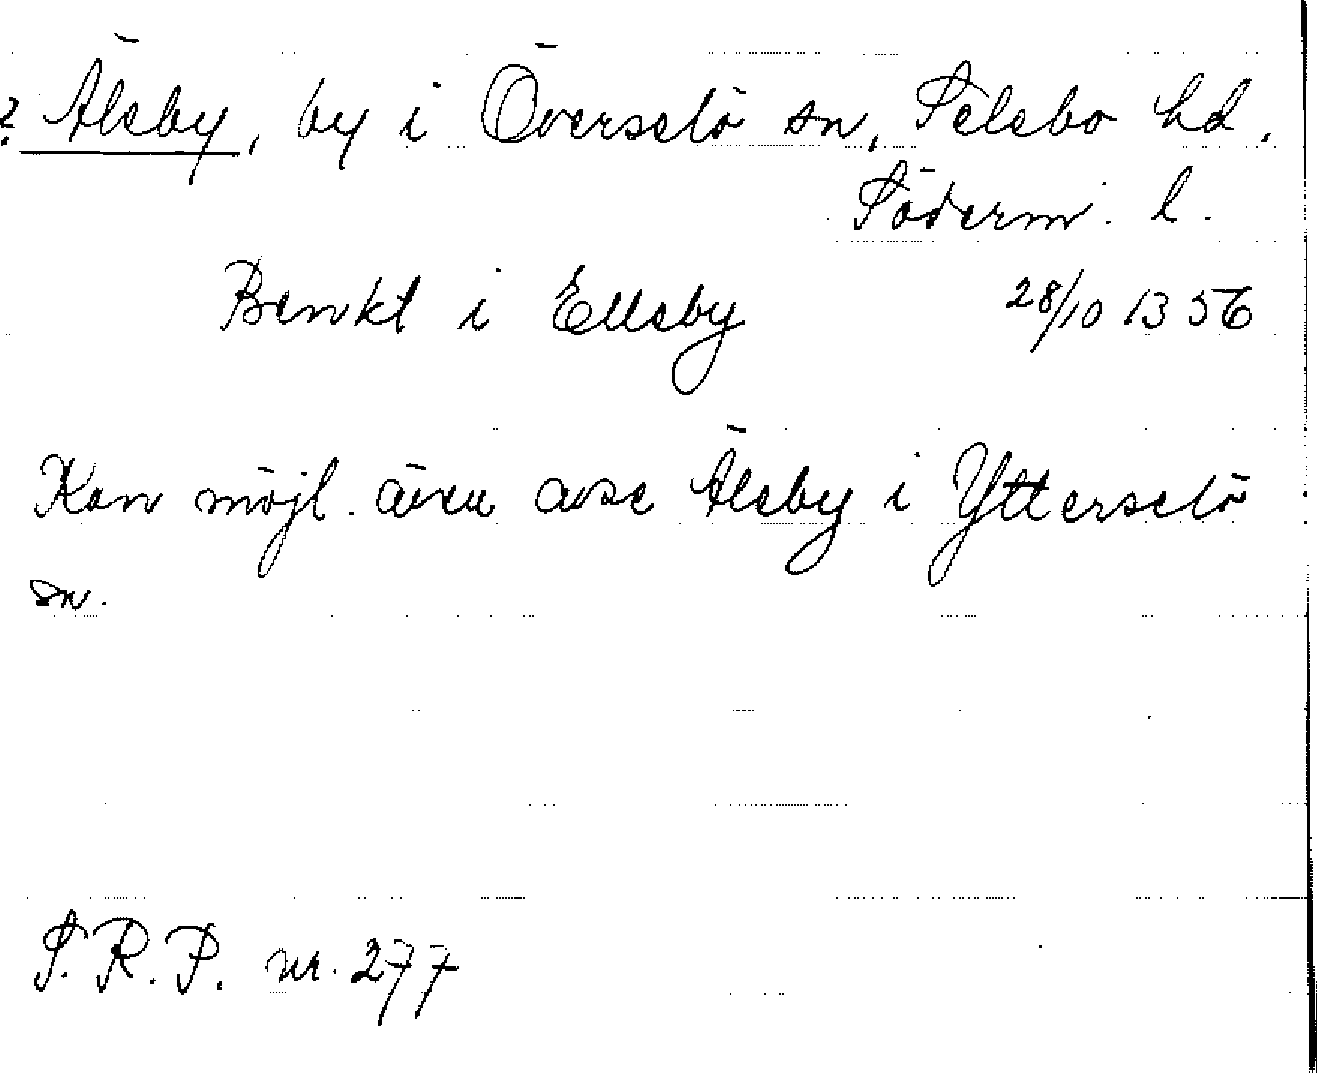 ? Älsby, by i Överselö sn, Selebo hd,
Söderm. l.
Benkt i Ellsby 28/10 1356
Kan möjl. även avse Älsby i Ytterselö
sn.
S.R.P. nr. 277